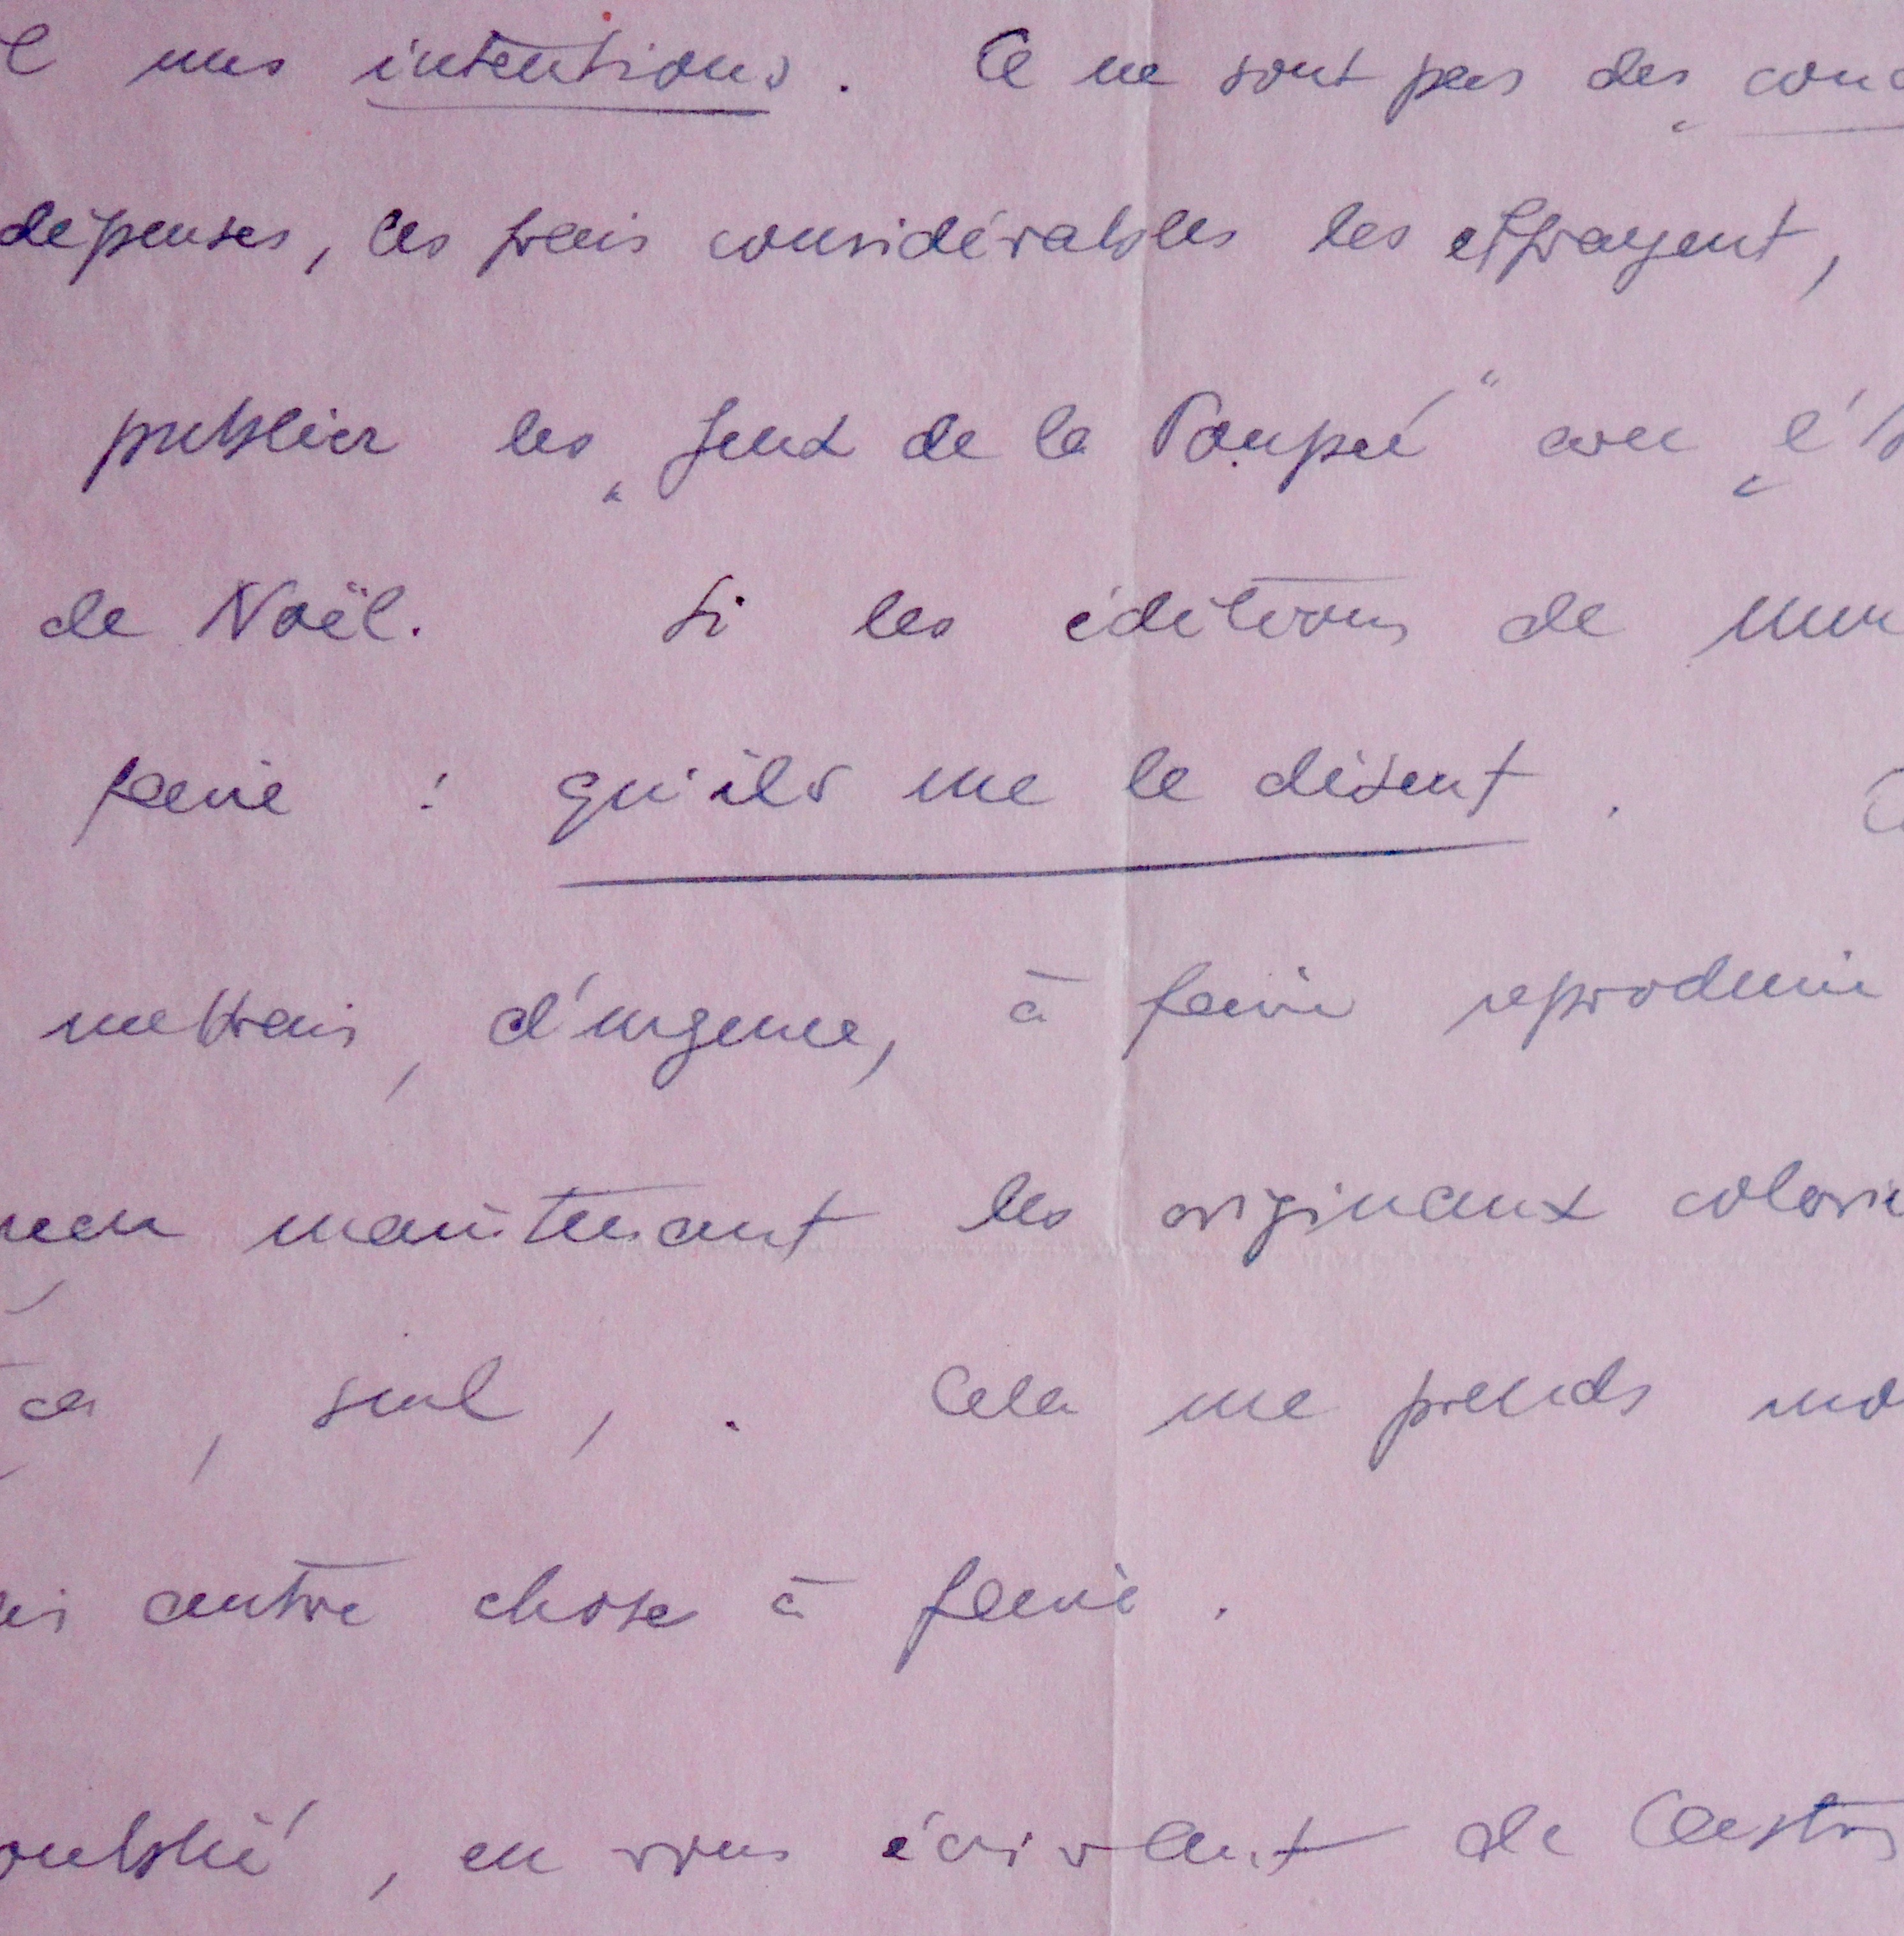 mes intentions. Ce ne sont pas des
dépenses, les frais considérables les effrayent,
publier les „Jeux de la Poupée" avec
de Noël. Si les éditions de
faire : qu'ils me le disent.
mettrais, d'urgence, à faire reproduire
maintenant les originaux
seul, . Cela me prends
autre chose à faire.
oublié, en vous écrivant de